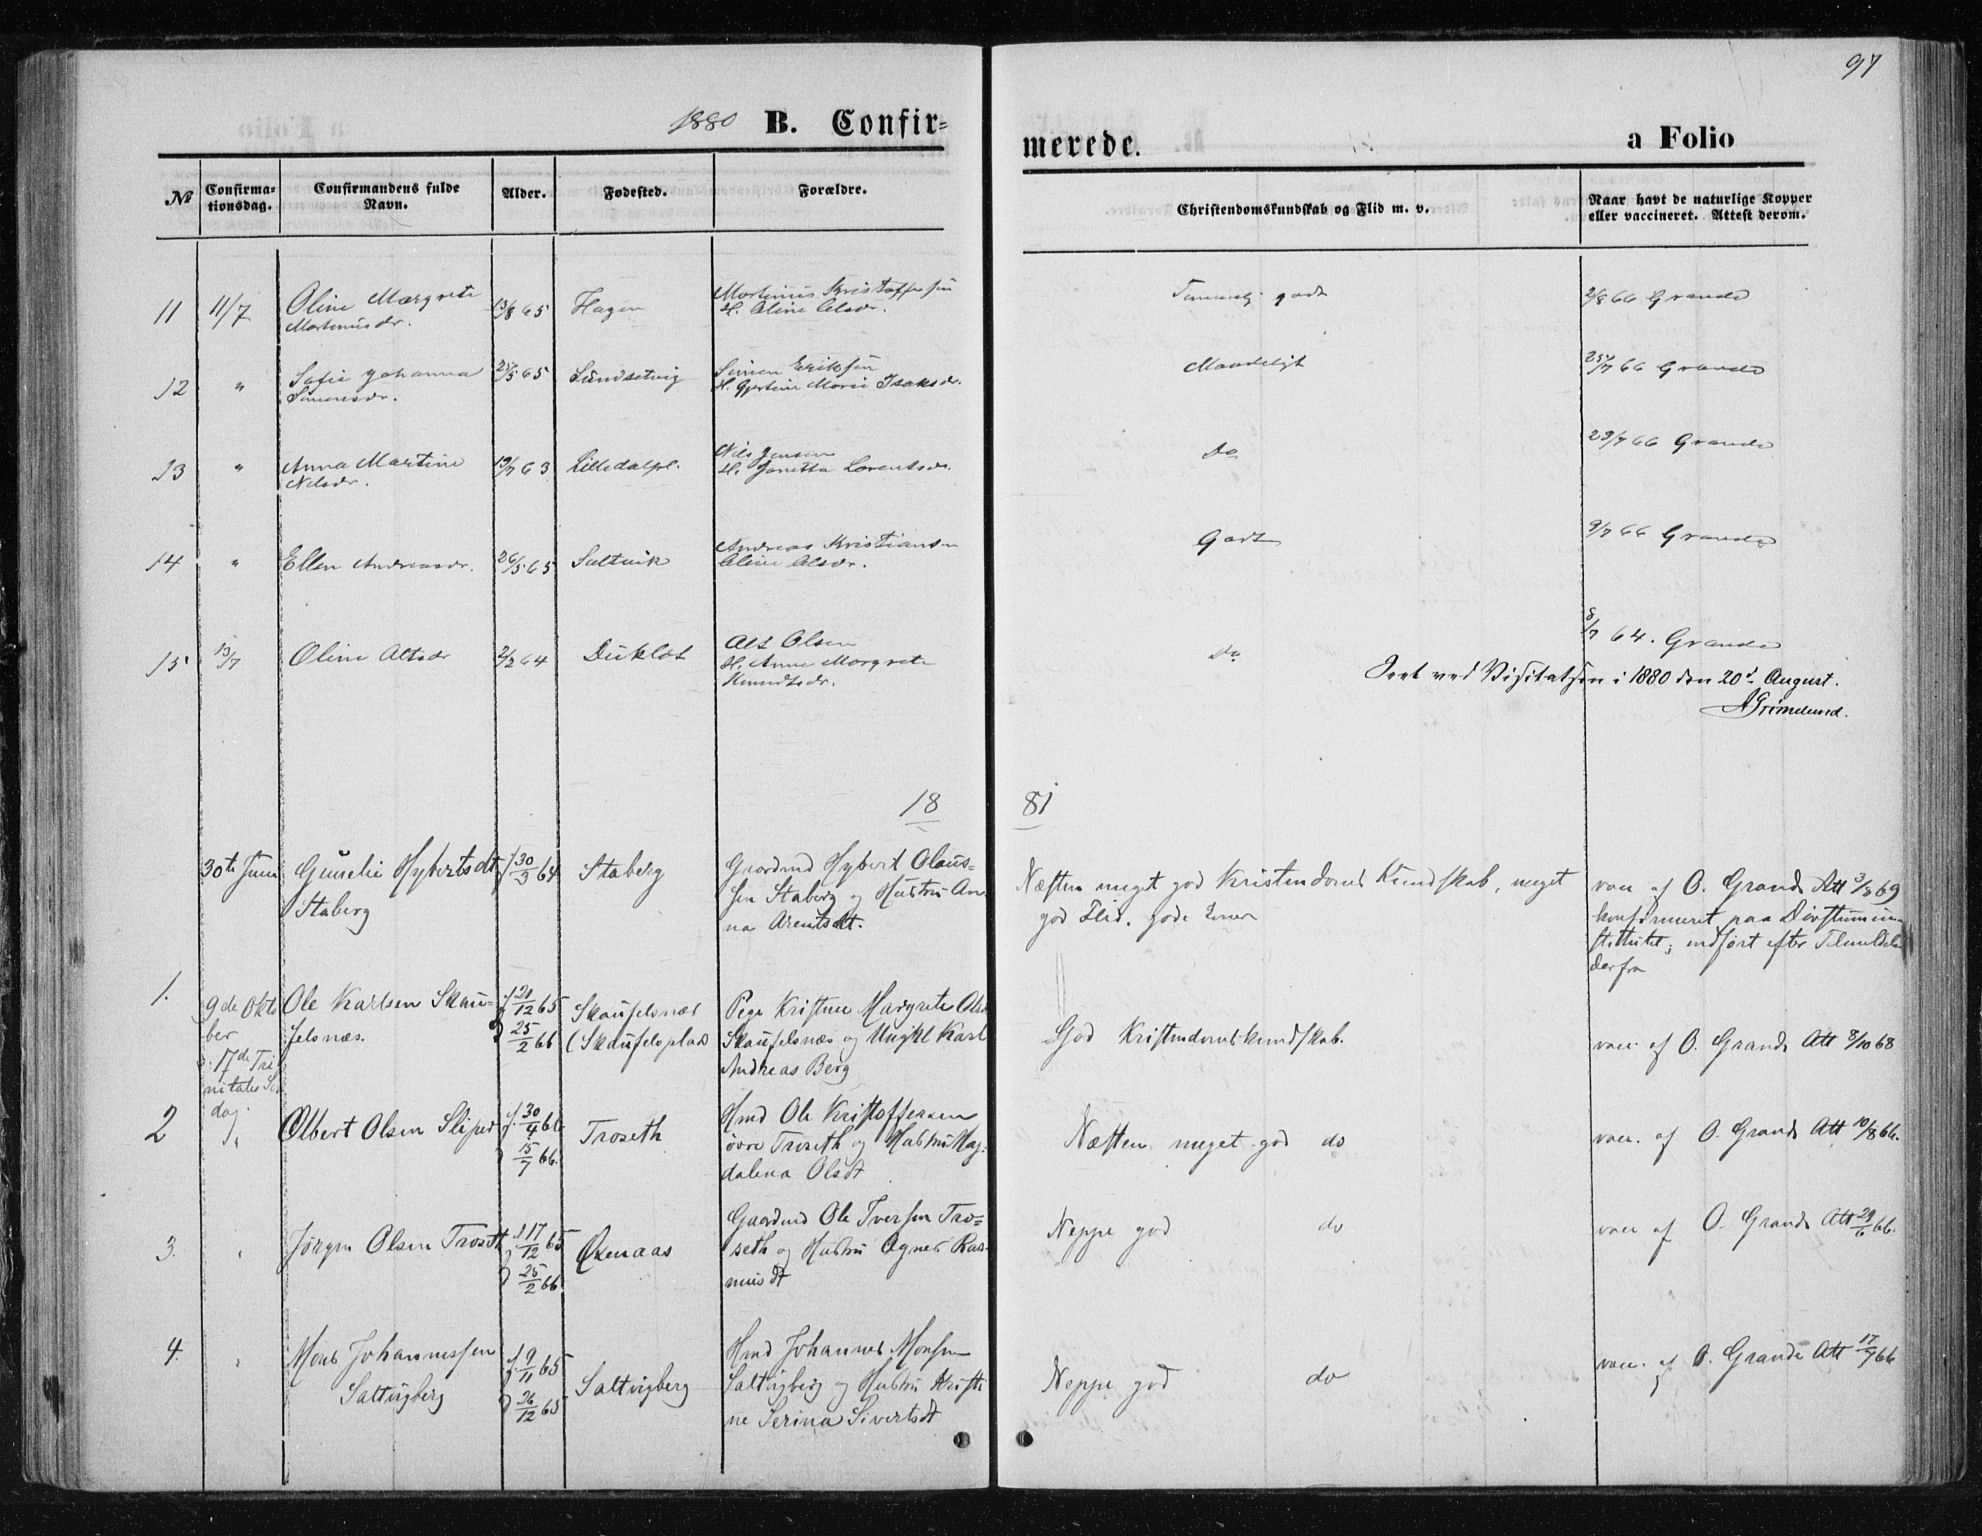 97
1880 B. Confir-
merede.
a Folio
№
Confirma-
tionsdag.
Confirmandens fulde
Navn.
Alder.
Fødested.
Forældre.
Christendomskundskab og Flid m. v.
Naar havt de naturlige Kopper
eller vaccineret. Attest derom.
11 11/7 Oline Margrete
Martinusdr.
13/8 65 Hagen
Martinus Kristoffersen
H. Oline Olsdr.
Temmelig godt
2/8 66 Grande
12 " Sofie Johanna
Simonsdr.
25/5 65
Simon Eriksen
H. Gjertine Marie Isaksdr.
Maadeligt
25/7 66 Grande
13 " Anna Martine
Nilsdr.
19/7 63 Lilledalpl.
Nils Jensen
H. Jonetta Lorentsdr.
Do
29/7 66 Grande
14 " Ellen Andreasdr.
26/5 65 Saltvik
Andreas Kristiansen
Oline Olsdr.
Godt
9/7 66 Grande
15 13/7 Oline Altsdr
2/2 64
Alt Olsen
H. Anne Margrete
Knudtsdr.
Do
8/7 64. Grande
Seet ved Visitatsen i 1880 den 20d August.
AGrimelund.
18 81
30te Juni Gunelie Hybertsdt
Staberg
f 30/3 64 Staberg
Gaardmd Hybert Olaus-
sen Staberg og Hustru An-
na Arentsdt.
Næsten meget god Kristendoms Kundskab, meget
god Flid. gode Evner
vacc af O. Grande Att 3/8 69
konfirmeret paa Døvstummein-
stitutet; indført efter
derfra
1. 9de Okto
ber
: 17de Tri
nitatis Sø
dag.
Ole Karlsen Skau-
felsnæs.
f 21/12 65
d 25/2 66
Skaufelsnæs
(Skaufelsplads
Pige Kristine Margrete Olsd
Skaufelsnæs og Ungkl Karl
Andreas Berg
God Kristendomskundskab.
vacc. af O. Grande Att 8/10 68
2 " Olbert Olsen Sliper
f. 30/4 66
d 15/7 66.
Troseth
Hmd Ole Kristoffersen
øvre Troseth og Hustru Mag-
dalena Olsdt
Næsten meget god do
vacc. af O. Grande Att 10/8 66.
3. " Jørgen Olsen Troseth
f. 17/12 65
d 25/2 66
Oxenaas
Gaardmd Ole Iversen Tro-
seth og Hustru Agnes Ras-
musdt
Neppe god do
vacc af O. Grande Att 29/6 66.
4. " Mons Johannessen
Saltvigberg
f. 9/11 65
d 26/12 65
Saltvigberg
Hmd Johannes Monsen
Saltvigberg og Hustru Kristi
ne Serina Sivertsdt
Neppe god do
vacc. af O. Grande Att 17/7 66